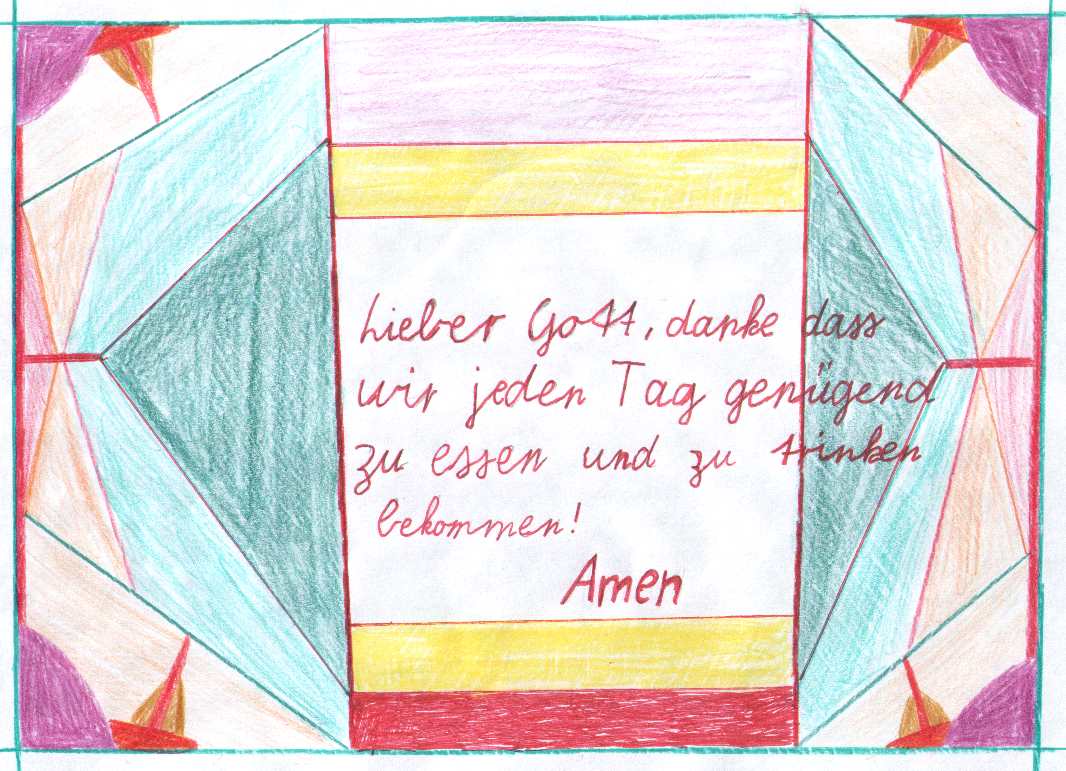 Lieber Gott, danke dass
wir jeden Tag genügend
zu essen und zu trinken
bekommen!
Amen